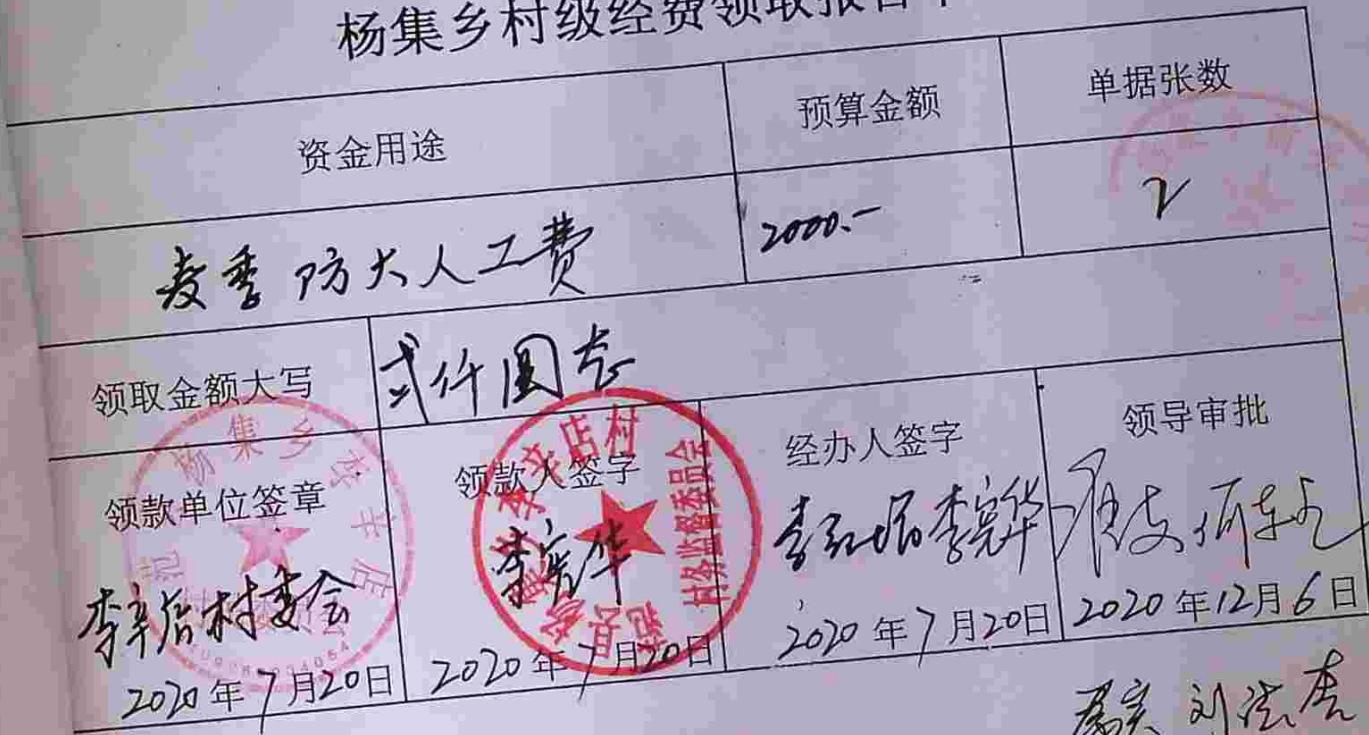 杨集乡村级经费领取报告单
资金用途 预算金额 单据张数
麦季防火人工费 2000.- 2
领取金额大写 弍仟圆整
领款单位签章 领款人签字 经办人签字 领导审批
李辛店村委会 李宪华 李宪华
2020年7月20日 2020年7月20日 2020年7月20日 2020年12月6日
杨集乡李辛店
李辛店村
村务监督委员会